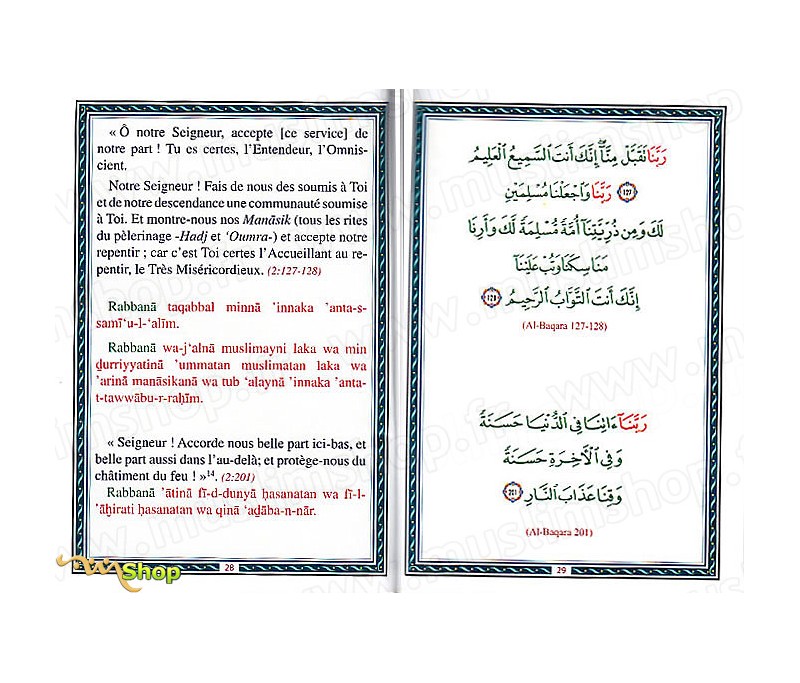 « Ô notre Seigneur, accepte [ce service] de
notre part ! Tu es certes, l'Entendeur, l'Omnis-
cient.
Notre Seigneur ! Fais de nous des soumis à Toi
et de notre descendance une communauté soumise
à Toi. Et montre-nous nos Manāsik (tous les rites
du pèlerinage -Hadj et 'Oumra-) et accepte notre
repentir ; car c'est Toi certes l'Accueillant au re-
pentir, le Très Miséricordieux. (2:127-128)
Rabbanā taqabbal minnā 'innaka 'anta-s-
samī'u-l-'alīm.
Rabbanā wa-j'alnā muslimayni laka wa min
ḏurriyyatinā 'ummatan muslimatan laka wa
'arinā manāsikanā wa tub 'alaynā 'innaka 'anta-
t-tawwābu-r-raḥīm.
« Seigneur ! Accorde nous belle part ici-bas, et
belle part aussi dans l'au-delà; et protège-nous du
châtiment du feu ! »14. (2:201)
Rabbanā 'ātinā fī-d-dunyā ḥasanatan wa fī-l-
'āḫirati ḥasanatan wa qinā 'aḏāba-n-nār.
28
رَبَّنَا تَقَبَّلْ مِنَّآ إِنَّكَ أَنتَ السَّمِيعُ الْعَلِيمُ
١٢٧ رَبَّنَا وَاجْعَلْنَا مُسْلِمَيْنِ
لَكَ وَمِن ذُرِّيَّتِنَآ أُمَّةً مُّسْلِمَةً لَّكَ وَأَرِنَا
مَنَاسِكَنَا وَتُبْ عَلَيْنَآ
إِنَّكَ أَنتَ التَّوَّابُ الرَّحِيمُ ١٢٨
(Al-Baqara 127-128)
رَبَّنَآ ءَاتِنَا فِي الدُّنْيَا حَسَنَةً
وَفِي الْآخِرَةِ حَسَنَةً
وَقِنَا عَذَابَ النَّارِ ٢٠١
(Al-Baqara 201)
29
Shop